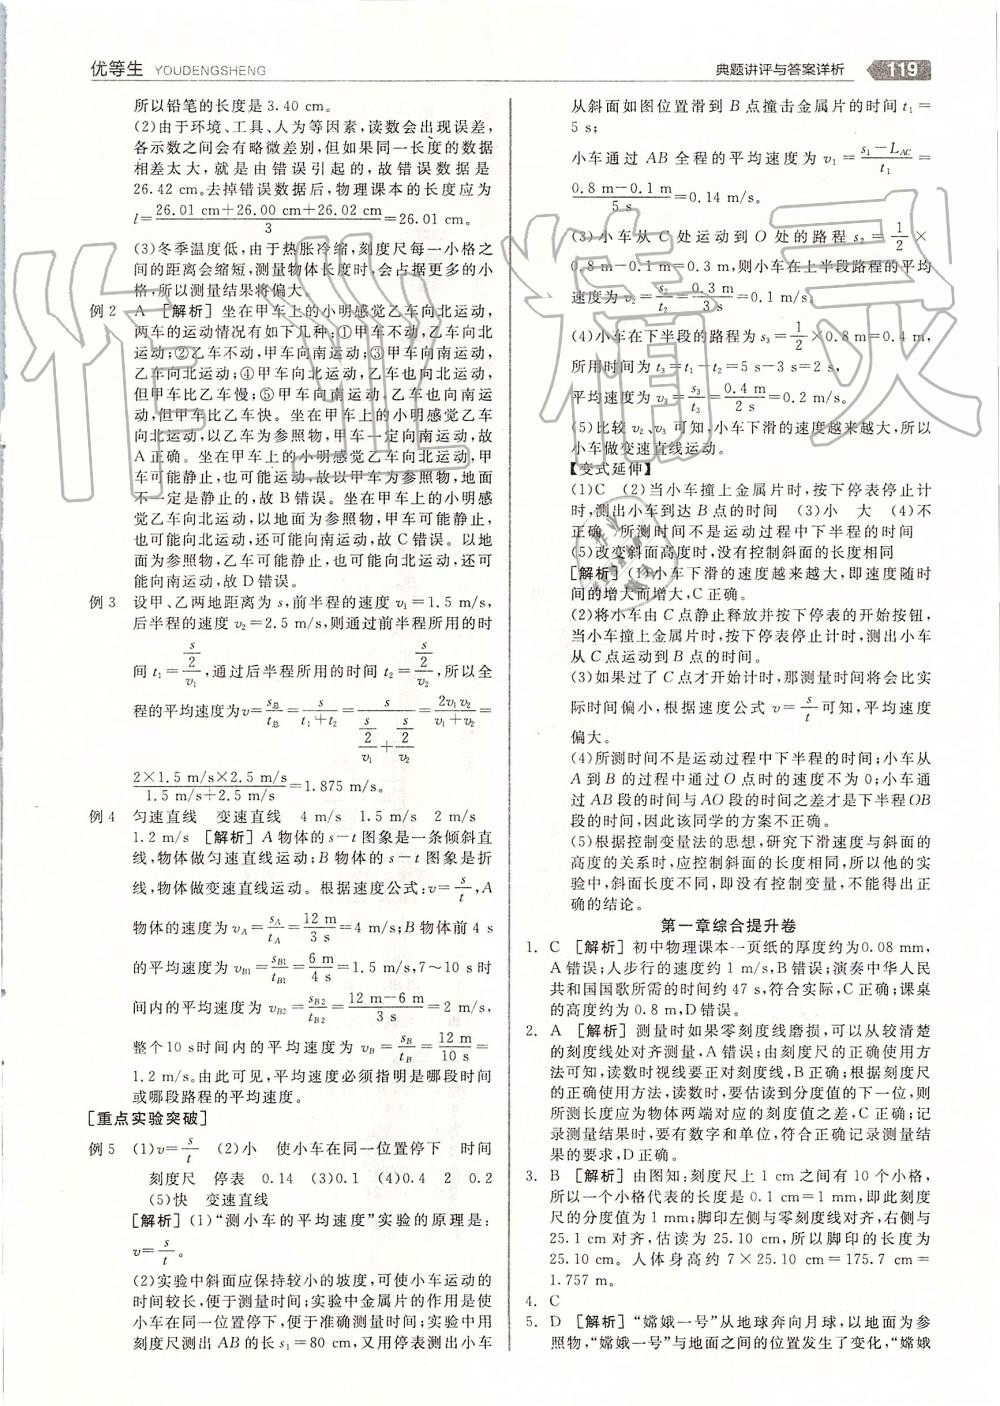 优等生 YOUDENGSHENG
典题讲评与答案详析 119
所以铅笔的长度是 3.40 cm。
(2)由于环境、工具、人为等因素,读数会出现误差,
各示数之间会有略微差别,但如果同一长度的数据
相差太大,就是由错误引起的,故错误数据是
26.42 cm。去掉错误数据后,物理课本的长度应为
l=(26.01 cm+26.00 cm+26.02 cm)/3=26.01 cm。
(3)冬季温度低,由于热胀冷缩,刻度尺每一小格之
间的距离会缩短,测量物体长度时,会占据更多的小
格,所以测量结果将偏大。
例2 A [解析] 坐在甲车上的小明感觉乙车向北运动,
两车的运动情况有如下几种:①甲车不动,乙车向北
运动;②乙车不动,甲车向南运动;③甲车向南运动,
乙车向北运动;④甲车向北运动,乙车也向北运动,
但甲车比乙车慢;⑤甲车向南运动,乙车也向南运动,
但甲车比乙车快。坐在甲车上的小明感觉乙车
向北运动,以乙车为参照物,甲车一定向南运动,故
A正确。坐在甲车上的小明感觉乙车向北运动,以
甲车为参照物,地面可能运动,也可能静止,地面不
一定是静止的,故B错误。坐在甲车上的小明感
觉乙车向北运动,以地面为参照物,甲车可能静止,
也可能向北运动,还可能向南运动,故C错误。以地
面为参照物,乙车可能静止,也可能向北运动,还可
能向南运动,故D错误。
例3 设甲、乙两地距离为s,前半程的速度 v1=1.5 m/s,
后半程的速度 v2=2.5 m/s,则通过前半程所用的时
间 t1=(s/2)/v1,通过后半程所用的时间 t2=(s/2)/v2,所以全
程的平均速度为v=s总/t总=s/(t1+t2)=s/((s/2)/v1+(s/2)/v2)=2v1v2/(v1+v2)=
(2×1.5 m/s×2.5 m/s)/(1.5 m/s+2.5 m/s)=1.875 m/s。
例4 匀速直线 变速直线 4 m/s 1.5 m/s 2 m/s
1.2 m/s [解析] A物体的 s-t 图象是一条倾斜直
线,物体做匀速直线运动;B物体的 s-t 图象是折
线,物体做变速直线运动。根据速度公式:v=s/t,A
物体的速度为 vA=sA/tA=12 m/3 s=4 m/s;B物体前4 s
的平均速度为 vB1=sB1/tB1=6 m/4 s=1.5 m/s,7~10 s时
间内的平均速度为 vB2=sB2/tB2=(12 m-6 m)/3 s=2 m/s,
整个10 s时间内的平均速度为 vB=sB/tB=12 m/10 s=
1.2 m/s。由此可见,平均速度必须指明是哪段时间
或哪段路程的平均速度。
[重点实验突破]
例5 (1)v=s/t (2)小 使小车在同一位置停下 时间
刻度尺 停表 0.14 (3)0.1 (4)0.4 2 0.2
(5)快 变速直线
[解析] (1)“测小车的平均速度”实验的原理是:
v=s/t。
(2)实验中斜面应保持较小的坡度,可使小车运动的
时间较长,便于测量时间;实验中金属片的作用是使
小车在同一位置停下,便于准确测量时间;实验中用
刻度尺测出 AB 的长 s1=80 cm,又用停表测出小车
从斜面如图位置滑到 B 点撞击金属片的时间 t1=
5 s;
小车通过 AB 全程的平均速度为 v1=(s1-LAC)/t1=
(0.8 m-0.1 m)/5 s=0.14 m/s。
(3)小车从 C 处运动到 O 处的路程 s2=1/2×
0.8 m-0.1 m=0.3 m,则小车在上半段路程的平均
速度为 v2=s2/t2=0.3 m/3 s=0.1 m/s;
(4)小车在下半段的路程为 s3=1/2×0.8 m=0.4 m,
所用时间为 t3=t1-t2=5 s-3 s=2 s,
平均速度为 v3=s3/t3=0.4 m/2 s=0.2 m/s。
(5)比较 v2、v3 可知,小车下滑的速度越来越大,所以
小车做变速直线运动。
【变式延伸】
(1)C (2)当小车撞上金属片时,按下停表停止计
时,测出小车到达B点的时间 (3)小 大 (4)不
正确 所测时间不是运动过程中下半程的时间
(5)改变斜面高度时,没有控制斜面的长度相同
[解析] (1)小车下滑的速度越来越大,即速度随时
间的增大而增大,C正确。
(2)将小车由C点静止释放并按下停表的开始按钮,
当小车撞上金属片时,按下停表停止计时,测出小车
从C点运动到 B 点的时间。
(3)如果过了C点才开始计时,那测量时间将会比实
际时间偏小,根据速度公式 v=s/t可知,平均速度
偏大。
(4)所测时间不是运动过程中下半程的时间;小车从
A到B的过程中通过O点时的速度不为0;小车通
过AB段的时间与AO段的时间之差才是下半程OB
段的时间,因此该同学的方案不正确。
(5)根据控制变量法的思想,研究下滑速度与斜面的
高度的关系时,应控制斜面的长度相同,所以他的实
验中,斜面长度不同,即没有控制变量,不能得出正
确的结论。
第一章综合提升卷
1. C [解析] 初中物理课本一页纸的厚度约为0.08 mm,
A错误;人步行的速度约1 m/s,B错误;演奏中华人民
共和国国歌所需的时间约47 s,符合实际,C正确;课桌
的高度约为0.8 m,D错误。
2. A [解析] 测量时如果零刻度线磨损,可以从较清楚
的刻度线处对齐测量,A错误;由刻度尺的正确使用方
法可知,读数时视线要正对刻度线,B正确;根据刻度尺
的正确使用方法,读数时,要估读到分度值的下一位,则
所测长度应为物体两端对应的刻度值之差,C正确;记
录测量结果时,要有数字和单位,符合正确记录测量结
果的要求,D正确。
3. B [解析] 由图知:刻度尺上1 cm之间有10个小格,
所以一个小格代表的长度是0.1 cm=1 mm,即此刻度
尺的分度值为1 mm;脚印左侧与零刻线对齐,右侧与
25.1 cm对齐,估读为25.10 cm,所以脚印的长度为
25.10 cm。人体身高约 7×25.10 cm=175.7 cm=
1.757 m。
4. C
5. D [解析] “嫦娥一号”从地球奔向月球,以地面为参
照物,“嫦娥一号”与地面之间的位置发生了变化,“嫦娥
作业精灵